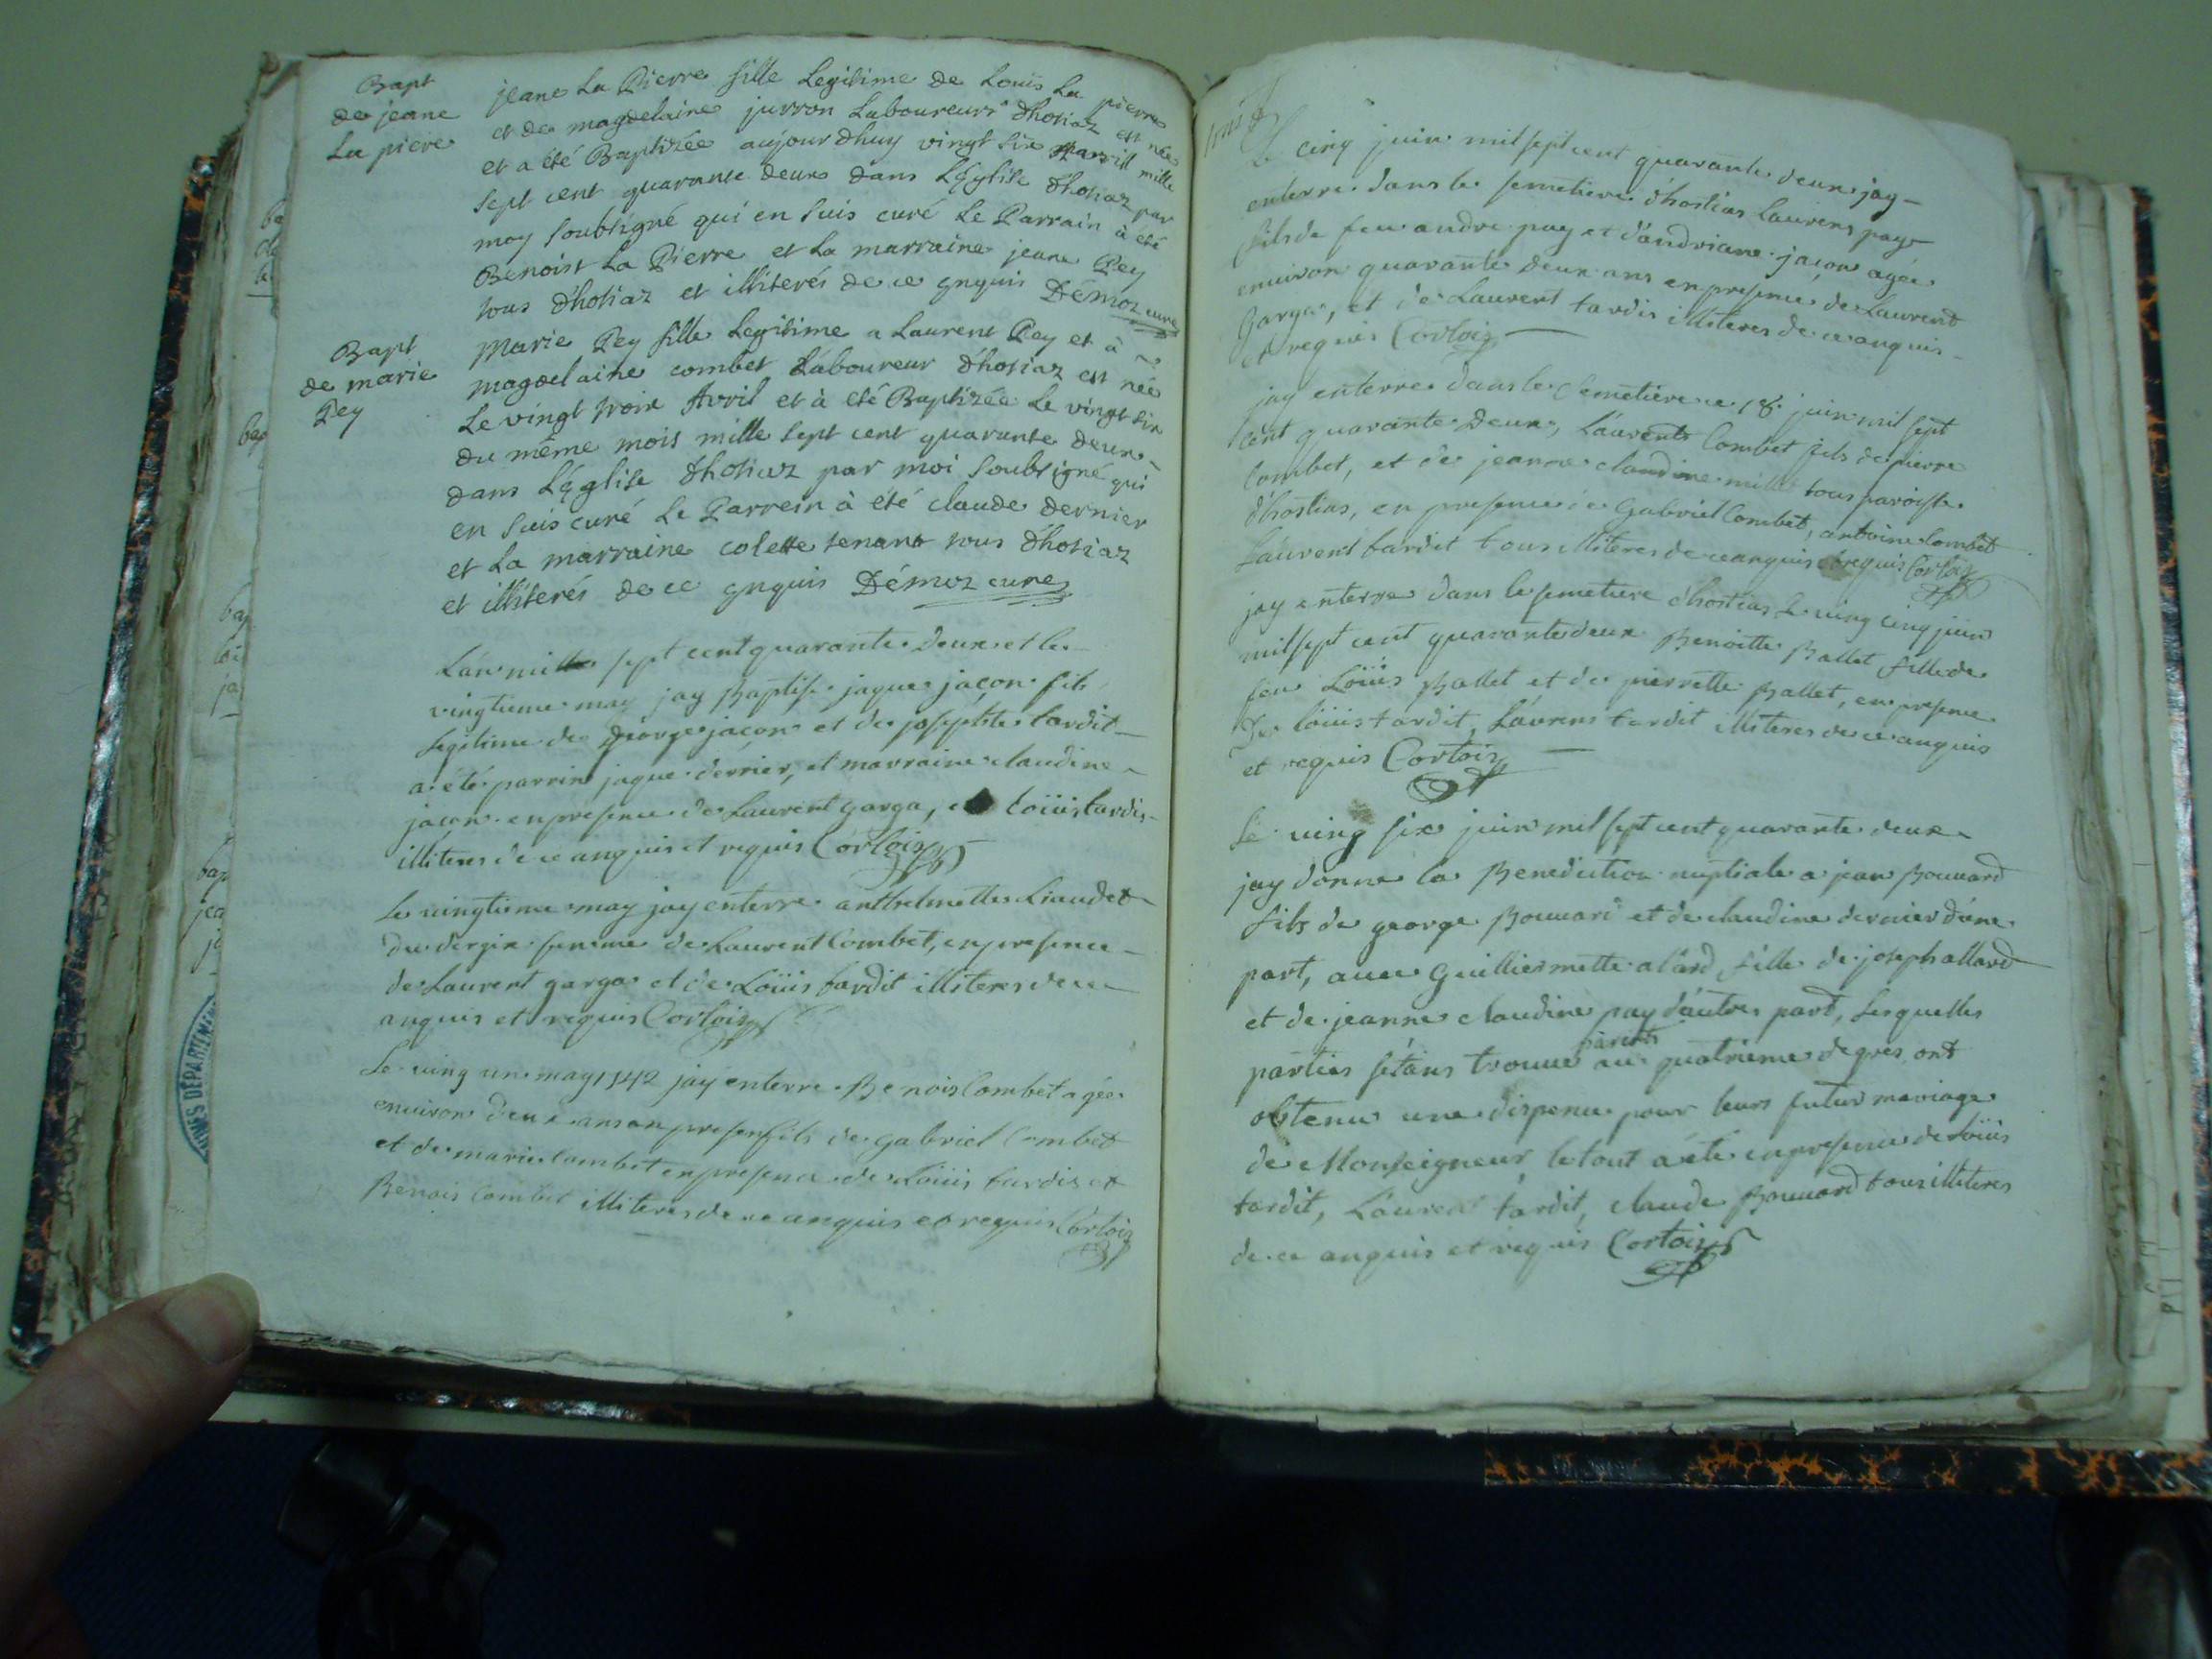 Bapt
de jeane
La piere
jeane La Pierre fille Legitime de Louis La pierre
et de magdelaine jurron Laboureurs dhotiaz est née
et a été Baptizée aujourdhuy vingt six avril mille
sept cent quarante deux dans L'Eglise dhotiaz par
moy soubsigné qui en suis curé Le Parrain à été
Benoist La Pierre et La marraine jeane Pey
tous d'hotiaz et illiterés de ce gnquis Démoz curé
Bapt
de marie
Pey
Marie Pey fille Legitime a Laurent Pey et à
magdelaine combet Laboureur d'hotiaz est née
Le vingt troix Avril et à été Baptizée Le vingt six
du même mois mille sept cent quarante deux
dans L'Eglise dhotiaz par moi soubsigné qui
en suis curé Le Parrein à été claude dernier
et La marraine colette tenant tous d'hotiaz
et illiterés de ce gnquis Démoz curé
L'an mille sept cent quarante deux et le
vingtieme may jay Baptise jaque jacon fils
legitime de george jacon et de josephte tardit
a été parrin jaque derrier, et marraine claudine
jacon en presence de Laurent garga, et Loüis tardis
illiteres de ce anquis et requis Cortois
Le vingtieme may jay enterre anthelmette Liaudet
du dergix femme de Laurent Combet, en presence
de Laurent garga et de Loüis tardit illiteres de ce
anquis et requis Cortois
Le ving un may 1742 jay enterre Benois Combet agée
environ deux ans en presen fils de gabriel Combet
et de marie Combet en presence de Loüis tardis et
Benois Combet illiteres de ce anquis et requis Cortois
Le cinq juin mil sept cent quarante deux jay
enterre dans le semetiere d'hostias Laurens pay
fils de feu andre pay et d'andriane jacon agée
environ quarante deux ans en presence de Laurend
garga, et de Laurent tardis illiteres de ce anquis
et requis Cortois
jay enterre dans le Cemetiere ce 18 juin mil sept
cent quarante deux, Laurents Combet fils de pierre
Combet, et de jeanne claudine millet tous paroisse
d'hostias, en presence de Gabriel Combet, antoine Combet
Laurent tardit tous illiteres de ce anquis et requis Cortois
jay enterre dans le semetiere d'hostias Le ving cinq juin
mil sept cent quarante deux Benoitte Ballet fille de
feu Loüis Ballet et de pierrette Ballet, en presence
de loüis tardit, Laurens tardit illiteres de ce anquis
et requis Cortois
Le ving six juin mil sept cent quarante deux
jay donne la Benediction nuptiale a jean Bouuard
fils de george Bouuard et de claudine dernier d'une
part, auec Guilliermette alard fille de joseph allard
et de jeanne claudine pay d'autre part, Lesquelles
parties s'etans trouue parents au quatrieme degres ont
obtenu une dispence pour leurs futur mariage
de Monseigneur, le tout a été en presence de Loüis
tardit, Laurent tardit, claude Bouuard tous illiteres
de ce anquis et requis Cortois